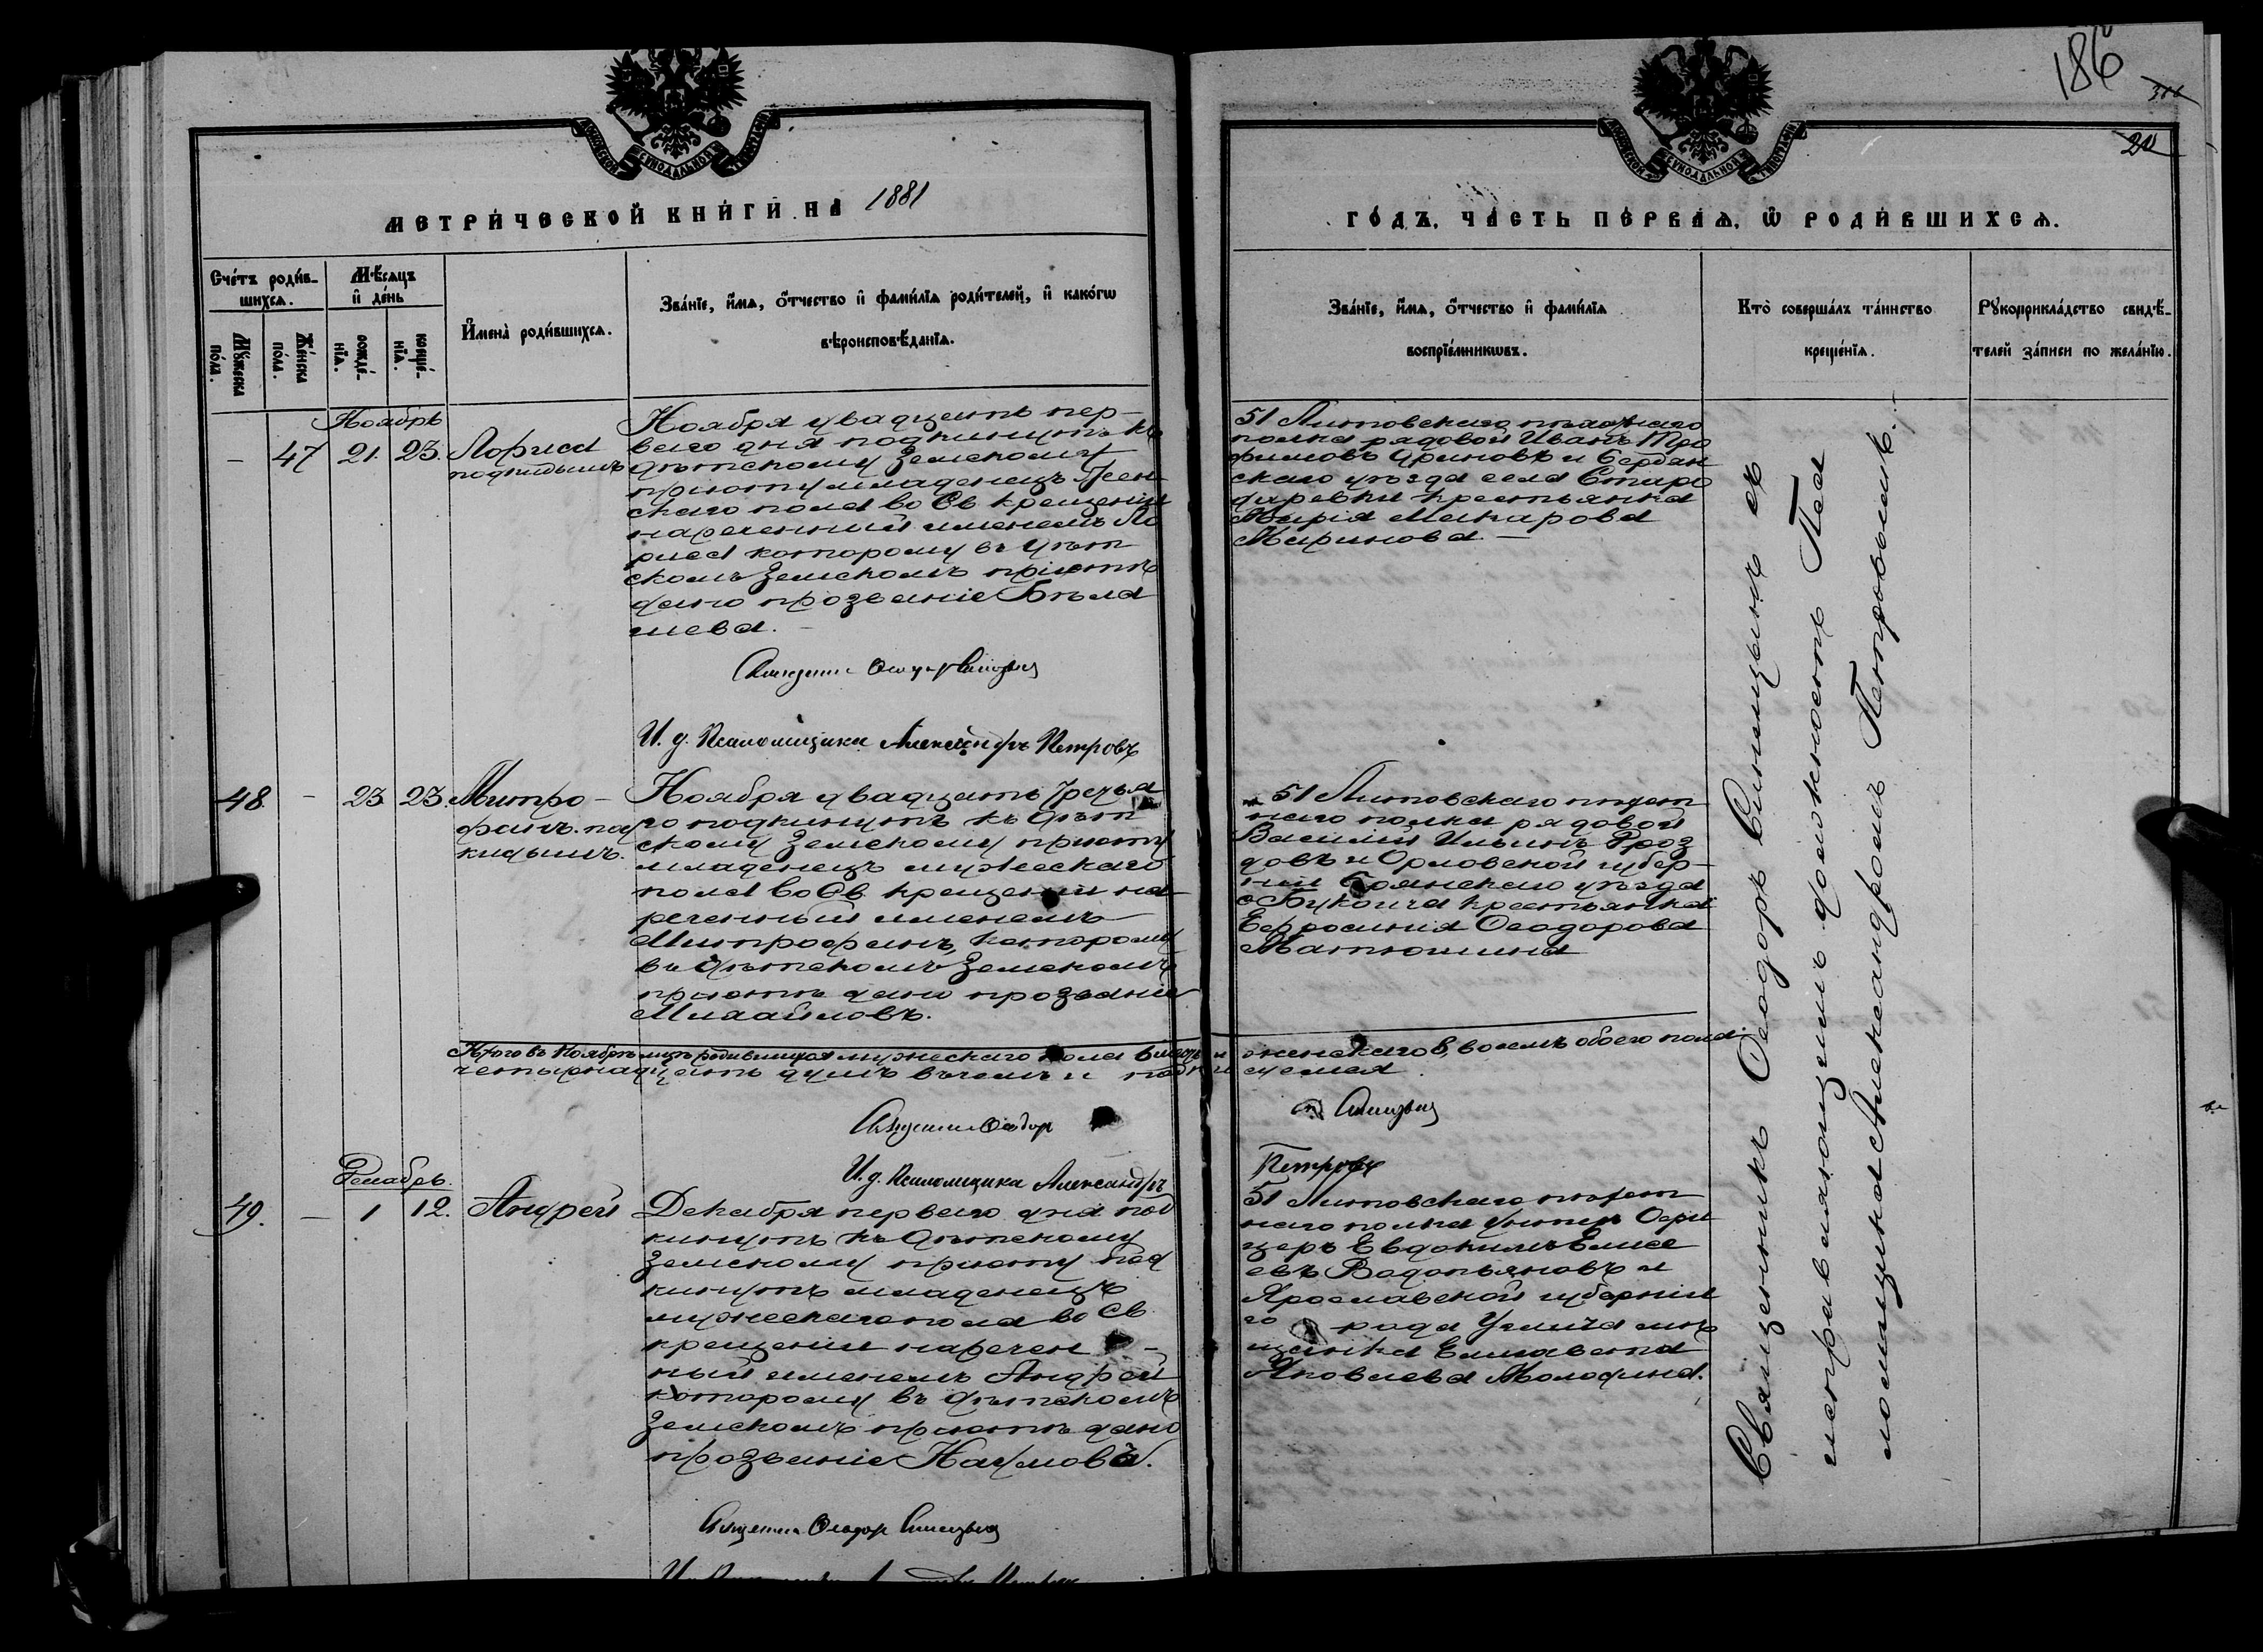 186
МЕТРИЧЕСКОЙ КНИГИ НА 1881
ГОДЪ, ЧАСТЬ ПЕРВАЯ, Ѿ РОДИВШИХСЯ.
Счетъ родив-
шихся.
Мужеска
пола.
Женска
пола.
Мѣсяцъ
и день
рожде-
нія.
креще-
нія.
Имена родившихся.
Званіе, имя, отчество и фамилія родителей, и какогѡ
вѣроисповѣданія.
Званіе, имя, отчество и фамилія
воспріемникѡвъ.
Кто совершалъ таинство
крещенія.
Рукоприкладство свидѣ-
телей записи по желанію.
Ноябрь
– 47 21. 23. Лариса
подкидышъ
Ноября двадцать пер-
ваго дня подкинутъ къ
дѣтскому Земскому
приюту младенецъ жен
скаго пола во Св крещеніи
нареченный именемъ Ла
риса которому въ дѣт
скомъ Земскомъ приютѣ
дано прозваніе Бѣла
шева. –
51 Литовскаго пѣхотнаго
полка рядовой Иванъ Тро
фимовъ и Бердян
скаго уѣзда села Старо
крестьянка
Марія Макарова
Маринова. –
Священникъ Ѳеодоръ Синицынъ
И. д. Псаломщика Александръ Петровъ
48 – 23 23. Митро-
фанъ. под
кидышъ.
Ноября двадцать третья
го подкинутъ къ дѣт
скому Земскому приюту
младенецъ мужескаго
пола во Св крещеніи на
реченный именемъ
Митрофанъ, которому
въ дѣтскомъ Земскомъ
приютѣ дано прозваніе
Михайловъ.
51 Литовскаго пѣхот
наго полка рядовой
Василій Ильинъ Дроз
довъ и Орловской губер-
ніи Брянскаго уѣзда
с Букоича крестьянка
Евфросинія Ѳеодорова
Матюшина
Итого въ Ноябрѣ мцѣ родившихся мужескаго пола 6 шесть и женскаго 8, восемь обоего пола
четырнадцать душъ въ чемъ и
Священникъ Ѳеодоръ Синицынъ
И. д. Псаломщика Александръ Петровъ
Декабрь.
49. – 1 12. Андрей
Декабря перваго дня под
кинутъ къ дѣтскому
Земскому приюту под
кинутъ младенецъ
мужескаго пола во Св
крещеніи наречен –
ный именемъ Андрей
которому въ дѣтскомъ
Земскомъ приютѣ дано
прозваніе Наумовъ.
51 Литовскаго пѣхот
наго полка унтеръ Офи
церъ Евдокимъ Елисе
евъ Водопьяновъ и
Ярославской губерніи
го рода Углича мѣ
щанка Елисавета
Яковлева Молодина.
Священникъ Ѳеодоръ Синицынъ
Священникъ Ѳеодоръ Синицынъ съ
исправляющимъ должность Пса
ломщика Александромъ Петровымъ. –